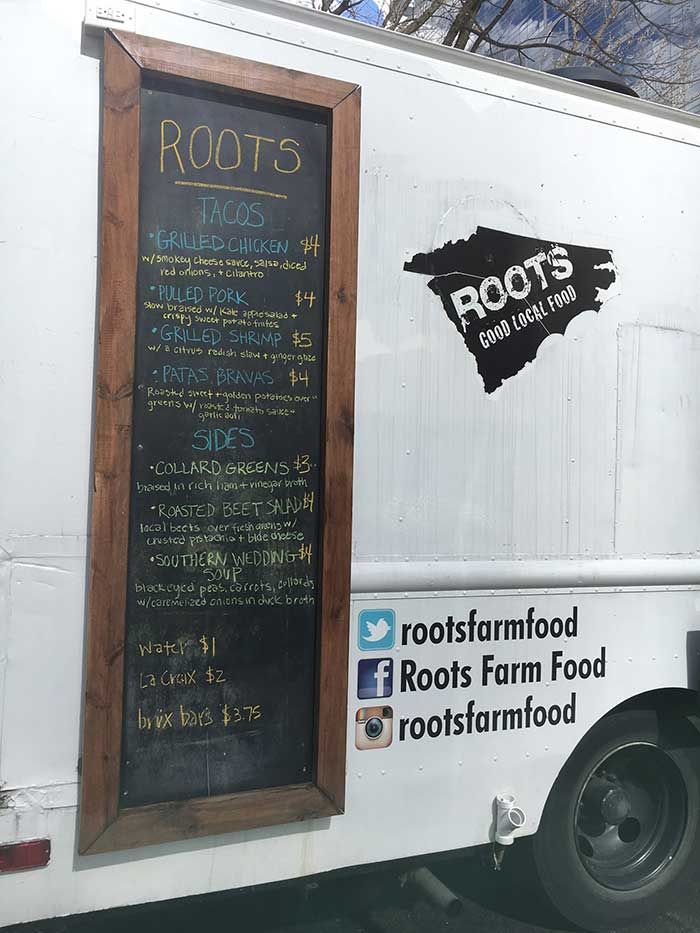 ROOTS
TACOS
• GRILLED CHICKEN $4
w/smokey cheese sauce, salsa, diced
red onions, + cilantro
• PULLED PORK $4
slow braised w/ Kale apple salad +
crispy sweet potato frites
• GRILLED SHRIMP $5
w/ a citrus redish slaw + ginger glaze
• PATAS BRAVAS $4
"Roasted sweet + golden potatoes over"
greens w/ roasted tomato sauce
garlic aoli
SIDES
• COLLARD GREENS $3
braised in rich ham + vinegar broth
• ROASTED BEET SALAD $4
local beets over fresh greens w/
crusted pistachio + blue cheese
• SOUTHERN WEDDING $4
SOUP
black eyed peas, carrots, collards
w/caremelized onions in duck broth
Water $1
La Croix $2
brix bars $3.75
ROOTS
GOOD LOCAL FOOD
rootsfarmfood
Roots Farm Food
rootsfarmfood